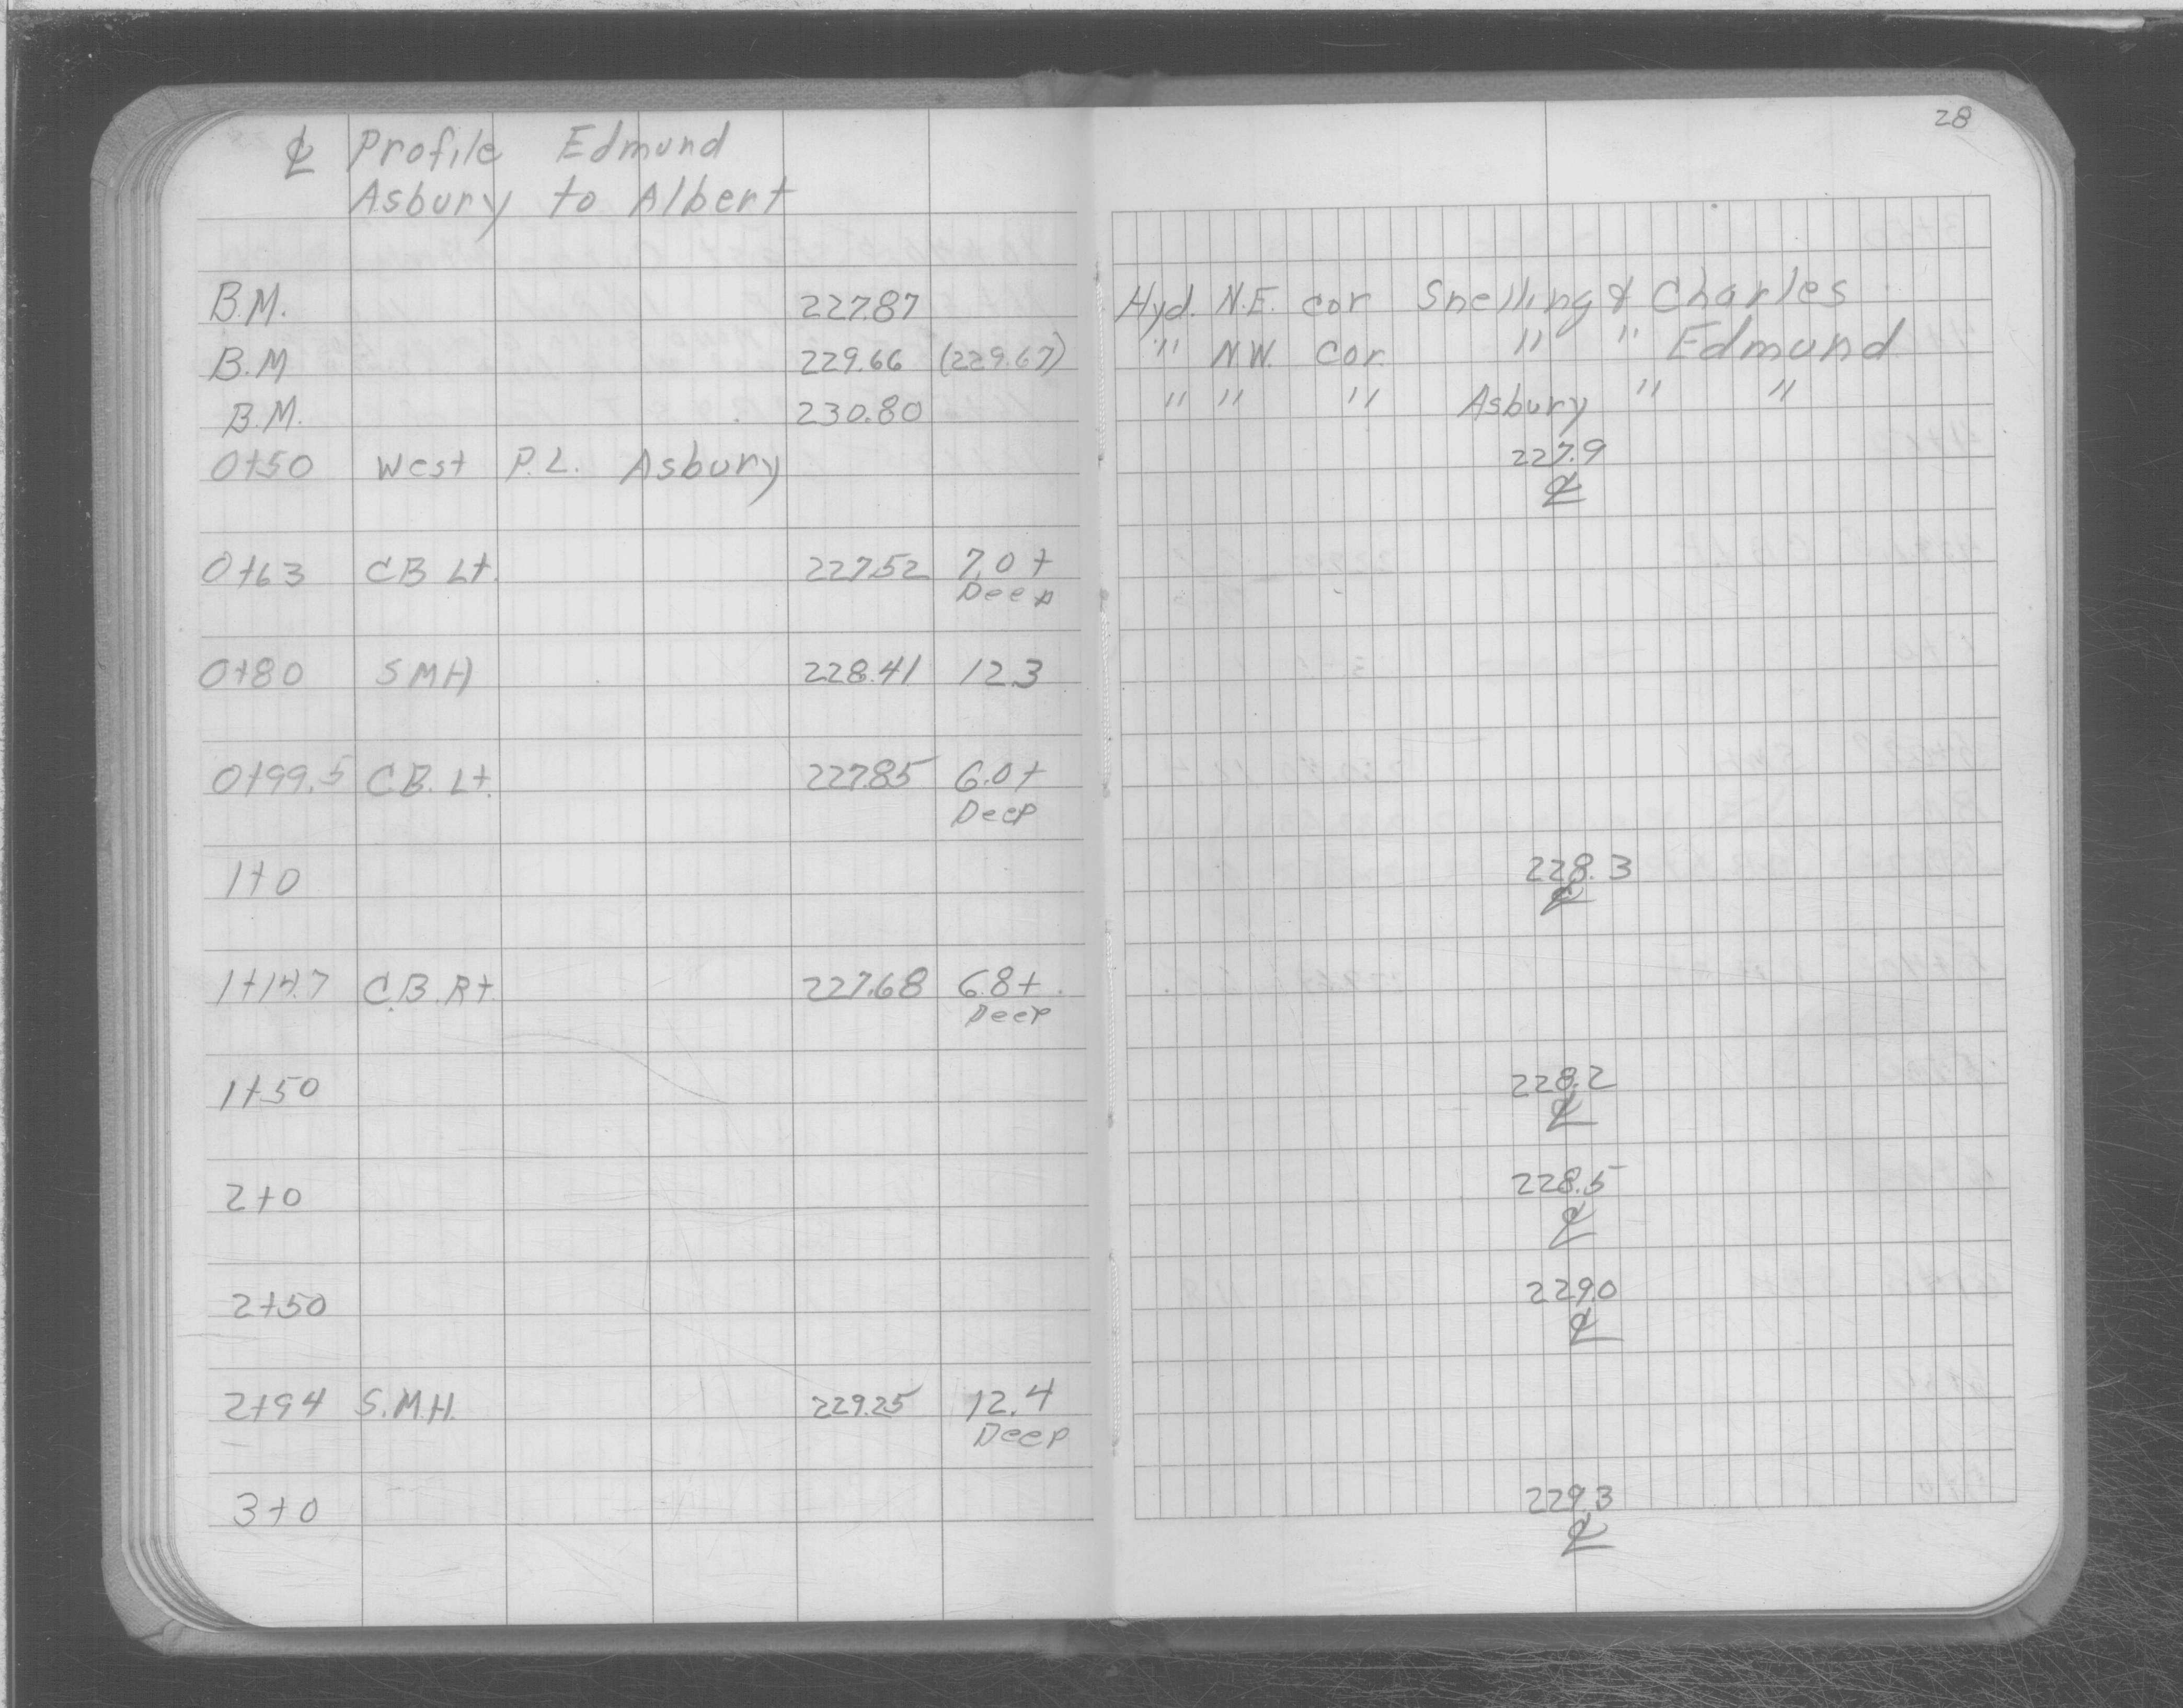 28
℄ Profile Edmund
Asbury to Albert
B.M. 227.87 Hyd. N.E. cor Snelling & Charles
B.M 229.66 (229.67) " N.W. cor. " " Edmund
B.M. 230.80 " " " Asbury " "
0+50 West P.L. Asbury 227.9
℄
0+63 CB Lt. 227.52 7.0+
Deep
0+80 SMH 228.41 12.3
0+99.5 C.B. Lt. 227.85 6.0+
Deep
1+0 228.3
℄
1+14.7 C.B. Rt. 227.68 6.8+
Deep
1+50 228.2
℄
2+0 228.5
℄
2+50 229.0
℄
2+94 S.M.H. 229.25 12.4
Deep
3+0 229.3
℄